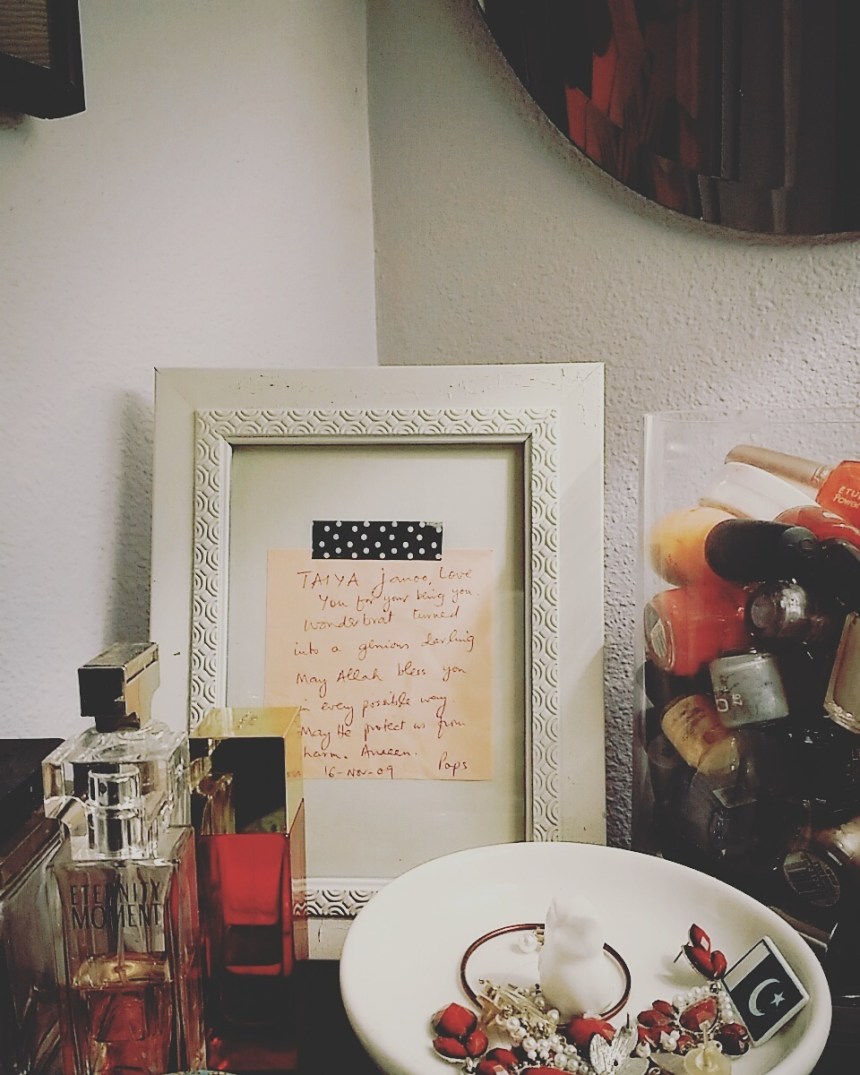 TAIYA janoo, Love
You for your being you.
Wonderbrat turned
into a genious darling
May Allah bless you
in every possible way.
May He protect us from
harm. Ameen.
16-Nov-09 Pops
ETERNITY
MOMENT